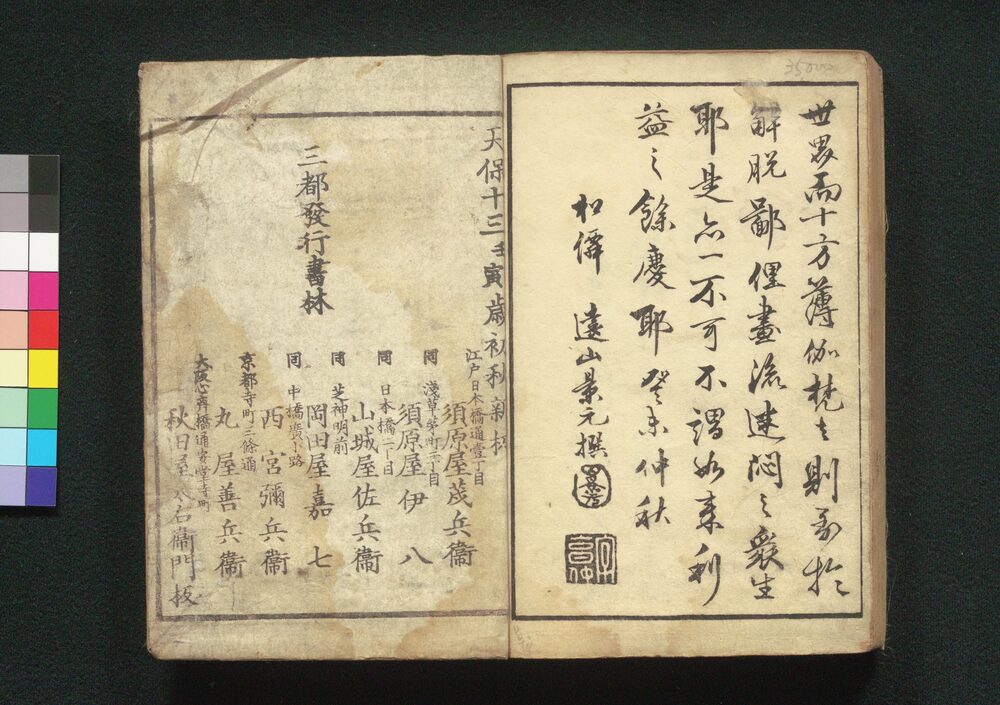 世界而十方薄伽梵之則前於
解脱鄙俚畫流迷悶之衆生
耶是亦一不可不謂如来利
益之餘慶耶癸未仲秋
和僲 遠山景元撰
天保十三壬寅歳初秋新板
三都發行書林
江戸日本橋通壹丁目
須原屋茂兵衞
同 淺草茅町二丁目
須原屋伊八
同 日本橋二丁目
山城屋佐兵衞
同 芝神明前
岡田屋嘉七
同 中橋廣小路
西宮彌兵衞
京都寺町三條通
丸屋善兵衞
大阪心斉橋通安堂寺町
秋田屋太右衞門板